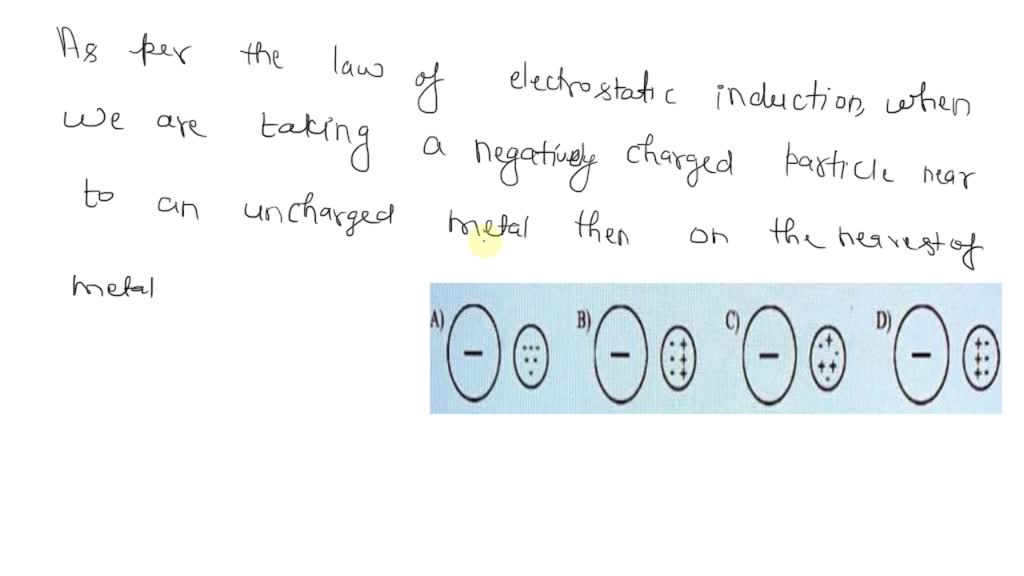 As per the law of electrostatic induction, when
we are taking a negatively charged particle near
to an uncharged metal then on the nearest of
metal
A) B) C) D)